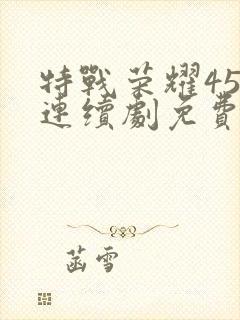 特戰榮耀45
連續劇免費
菡雪